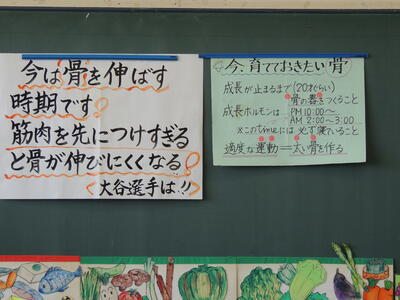 今は骨を伸ばす
時期です
筋肉を先につけすぎる
と骨が伸びにくくなる
大谷選手は!!
今、育てておきたい骨
成長が止まるまで(20才ぐらい)
骨の器をつくること
成長ホルモンは PM 10:00〜
AM 2:00〜3:00
※このtimeには必ず寝ていること
適度な運動=太い骨を作る